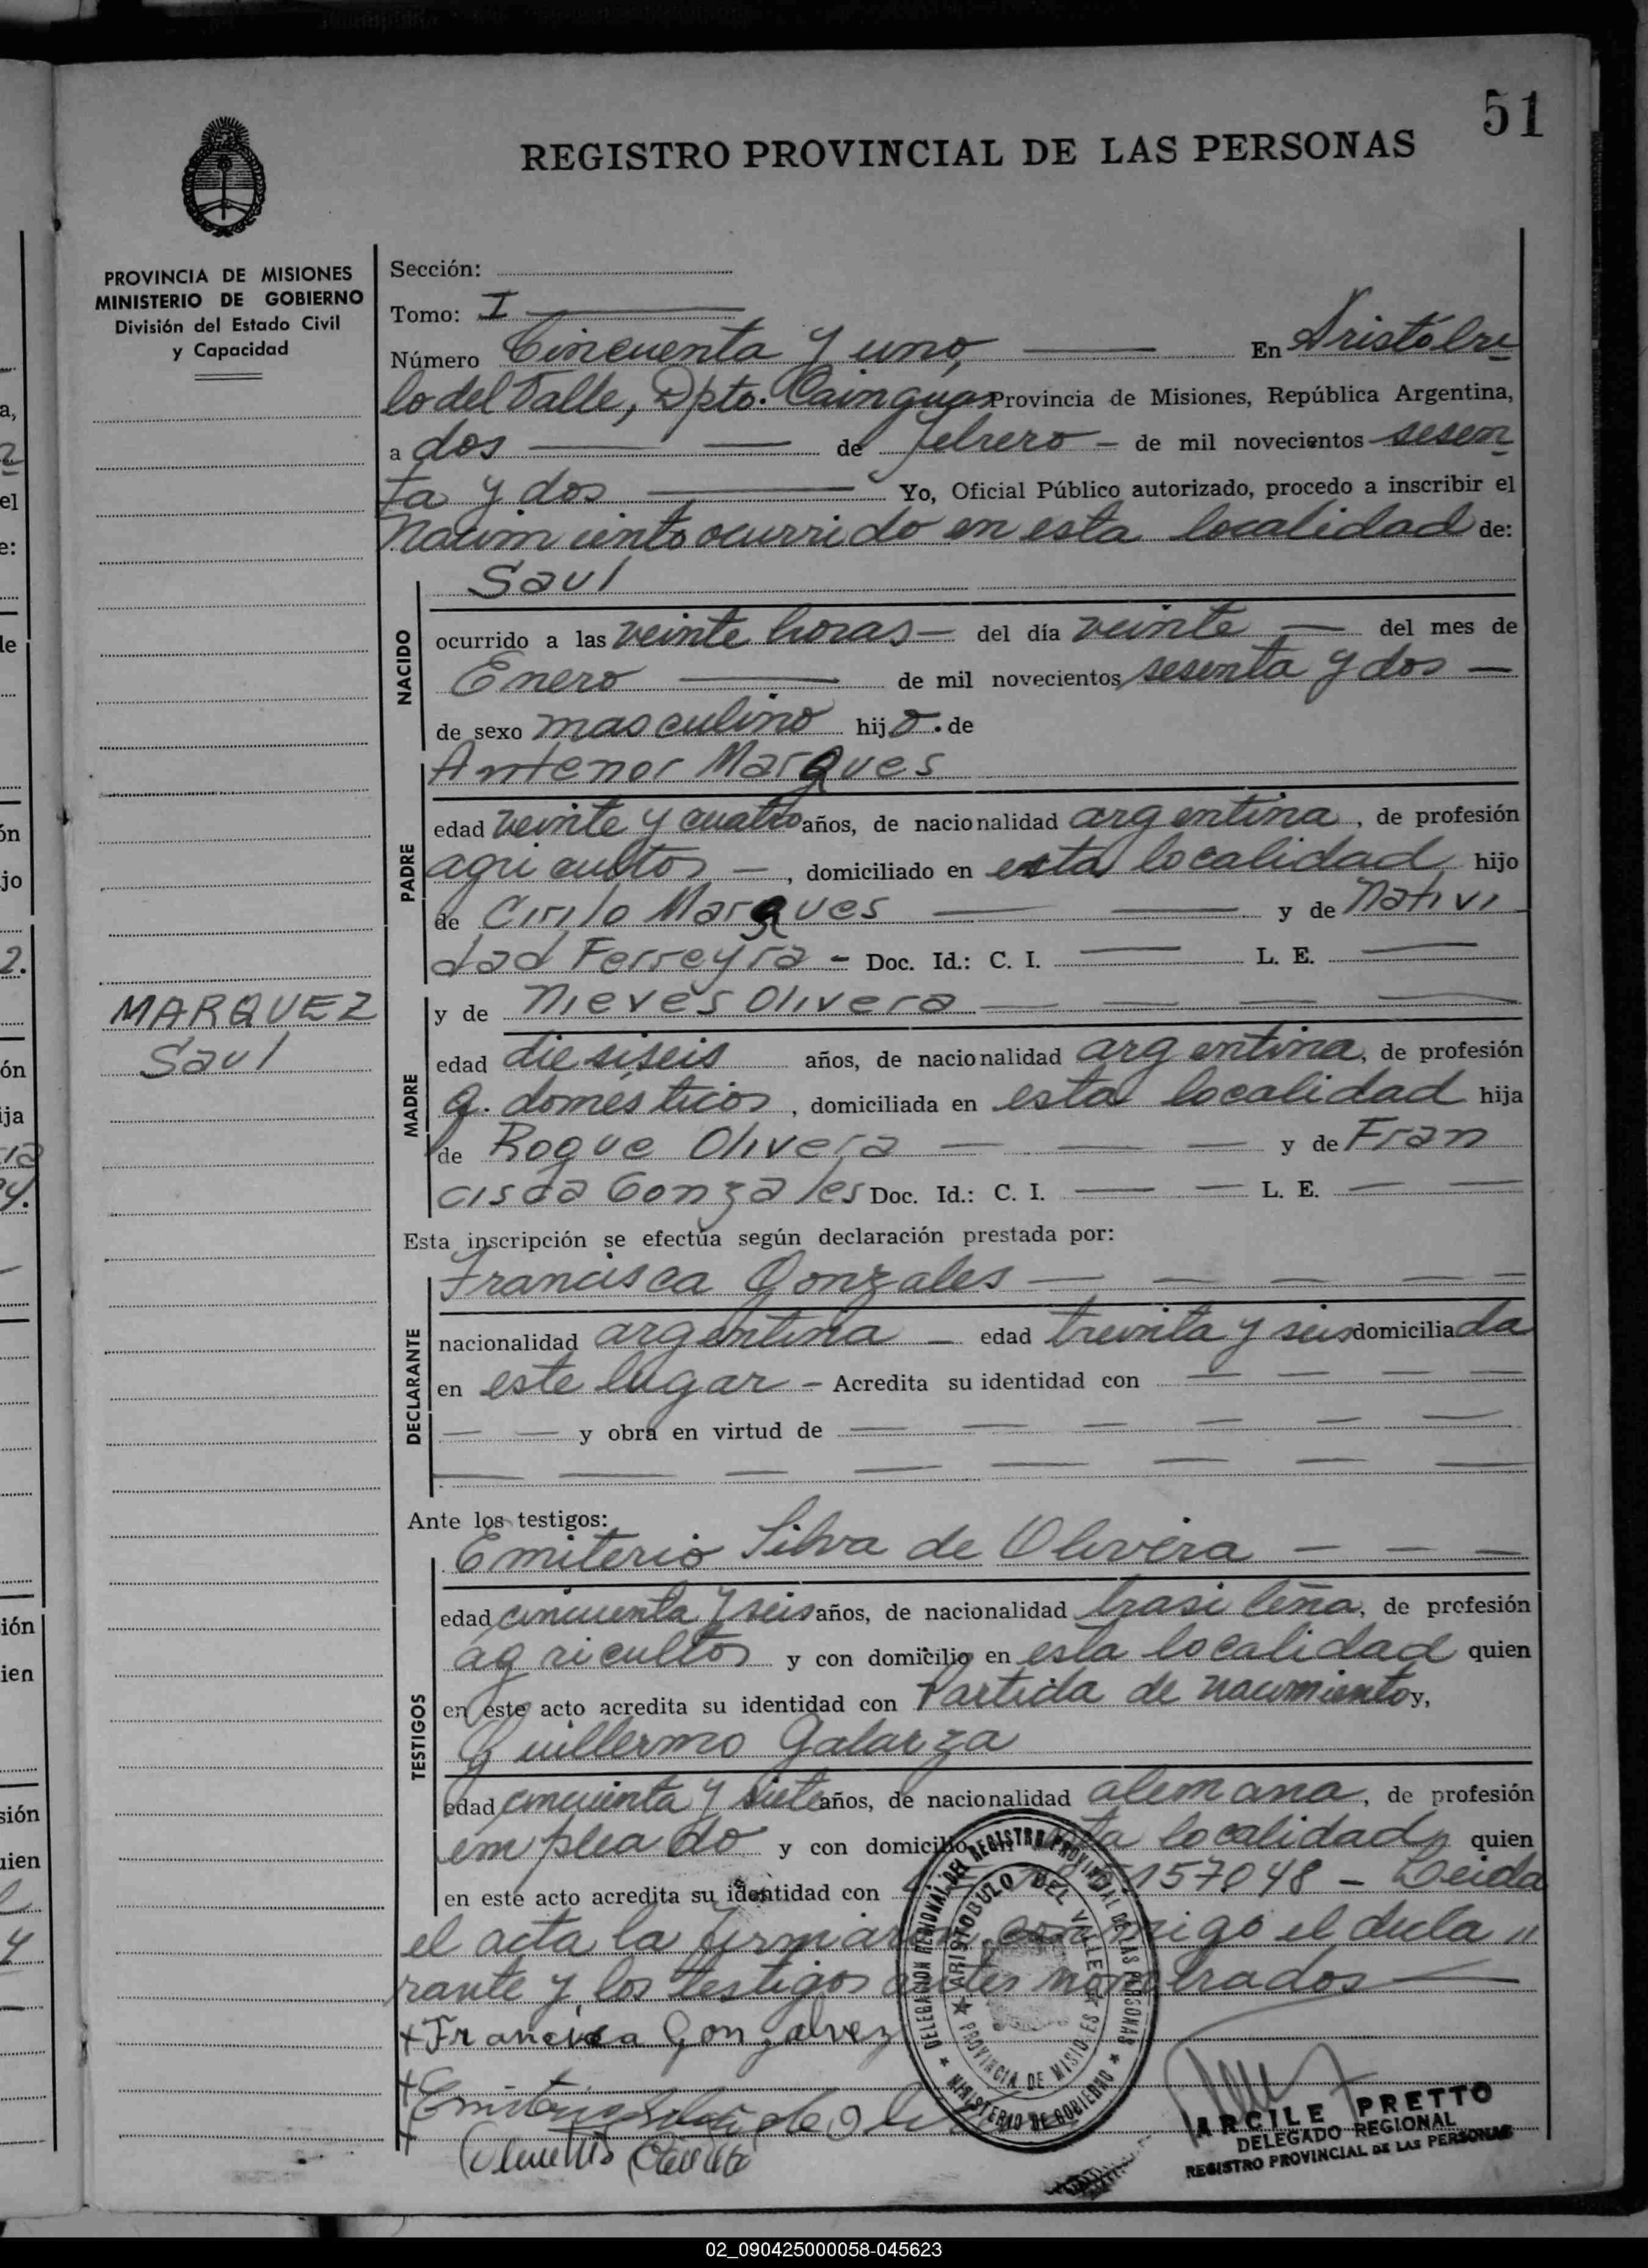 51
REGISTRO PROVINCIAL DE LAS PERSONAS
PROVINCIA DE MISIONES
MINISTERIO DE GOBIERNO
División del Estado Civil
y Capacidad
MARQUEZ
Saul
Sección:
Tomo: I
Número Cincuenta y uno, En Aristóbu
lo del Valle, Dpto. Cainguas Provincia de Misiones, República Argentina,
a dos de febrero de mil novecientos sesen
ta y dos Yo, Oficial Público autorizado, procedo a inscribir el
Nacimiento ocurrido en esta localidad de:
Saul
NACIDO
ocurrido a las veinte horas del día veinte del mes de
Enero de mil novecientos sesenta y dos
de sexo masculino hijo. de
Antenor Marques
PADRE
edad veinte y cuatro años, de nacionalidad argentina, de profesión
agricultor, domiciliado en esta localidad hijo
de Cirilo Marques y de Nativi
dad Ferreyra - Doc. Id.: C. I. L. E.
y de Nieves Olivera
MADRE
edad diesiseis años, de nacionalidad argentina, de profesión
q. domésticos, domiciliada en esta localidad hija
de Roque Olivera y de Fran
cisca Gonzales Doc. Id.: C. I. L. E.
Esta inscripción se efectúa según declaración prestada por:
Francisca Gonzales
DECLARANTE
nacionalidad argentina edad treinta y seis domiciliada
en este lugar - Acredita su identidad con
y obra en virtud de
Ante los testigos:
Emiterio Silva de Olivera
TESTIGOS
edad cincuenta y seis años, de nacionalidad brasileña, de profesión
agricultor y con domicilio en esta localidad quien
en este acto acredita su identidad con Partida de nacimiento y,
Guillermo Galarza
edad cincuenta y siete años, de nacionalidad alemana, de profesión
empleado y con domicilio en esta localidad, quien
en este acto acredita su identidad con 157048 - Leida
el acta la firmaron conmigo el decla
rante y los testigos antes nombrados
+Francisca Gonzalvez
+Emiterio Silva de Oli
DELEGACION REGIONAL DEL REGISTRO PROVINCIAL DE LAS PERSONAS
MINISTERIO DE GOBIERNO
ARISTOBUZO DEL VALLE
PROVINCIA DE MISIONES
ARCILE PRETTO
DELEGADO REGIONAL
REGISTRO PROVINCIAL DE LAS PERSONAS
02_090425000058-045623